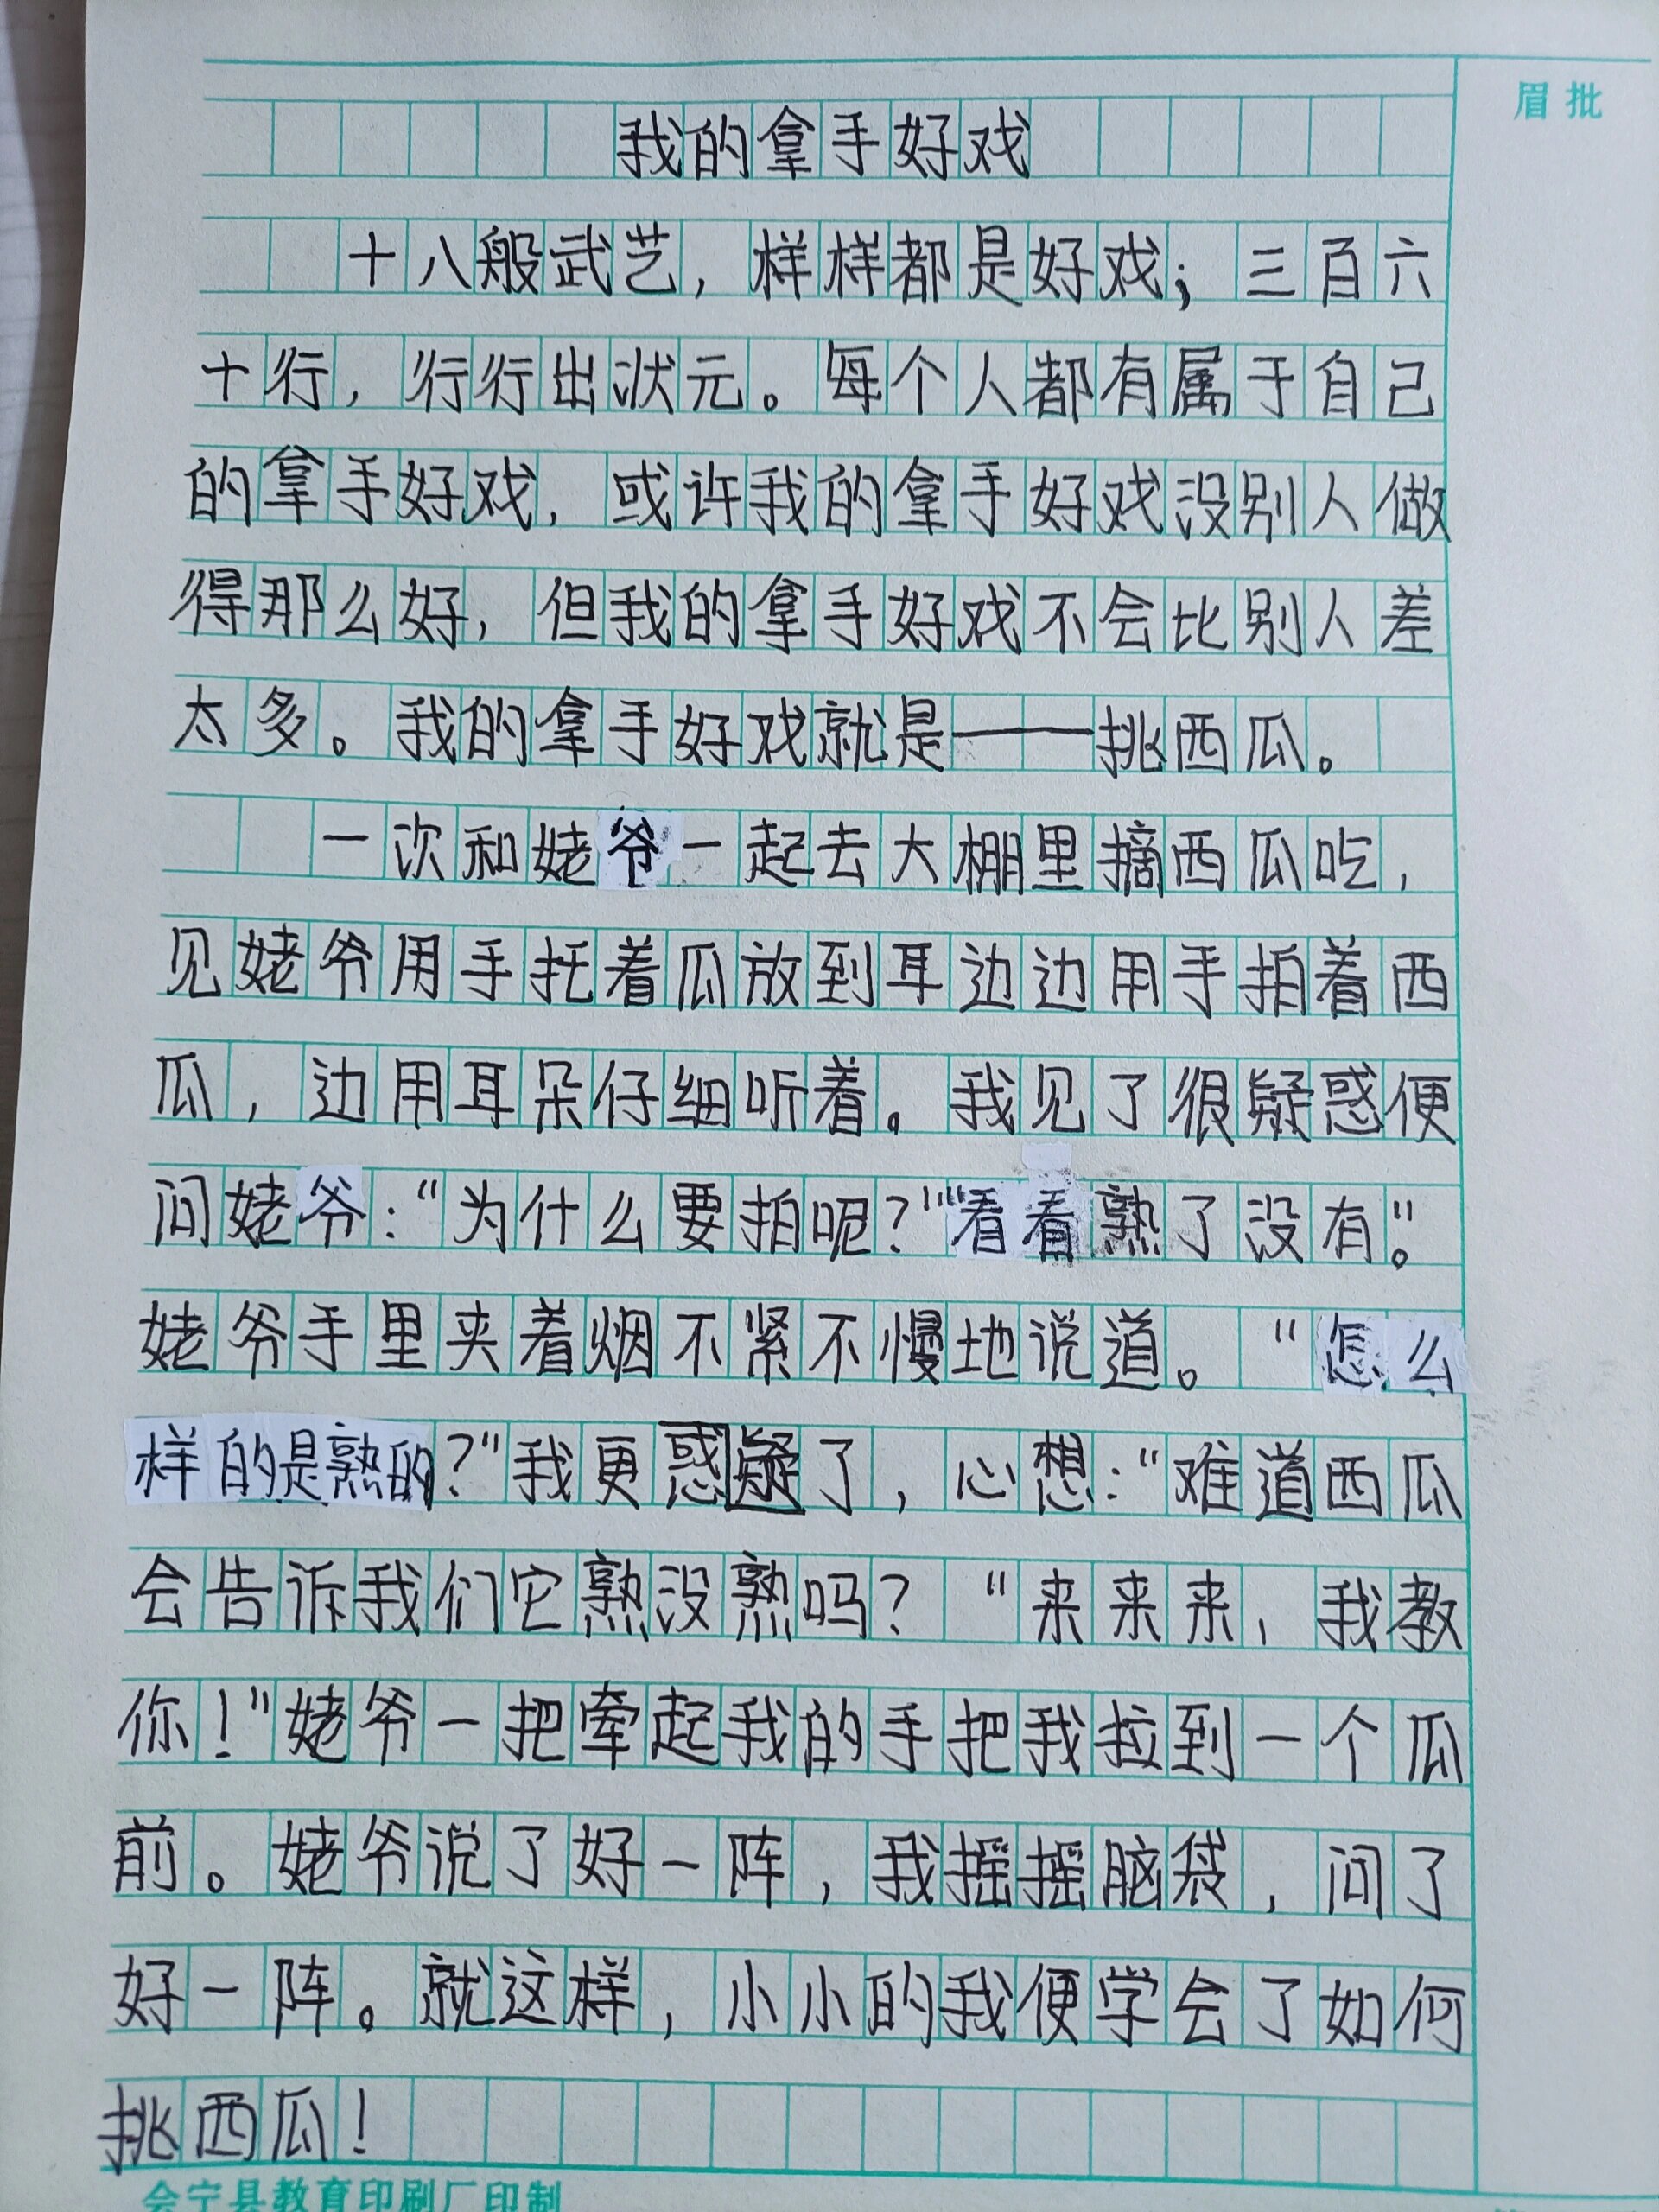 眉批
我的拿手好戏
十八般武艺，样样都是好戏；三百六
十行，行行出状元。每个人都有属于自己
的拿手好戏，或许我的拿手好戏没别人做
得那么好，但我的拿手好戏不会比别人差
太多。我的拿手好戏就是——挑西瓜。
一次和姥爷一起去大棚里摘西瓜吃，
见姥爷用手托着瓜放到耳边边用手拍着西
瓜，边用耳朵仔细听着。我见了很疑惑便
问姥爷：“为什么要拍呢？”“看看熟了没有。”
姥爷手里夹着烟不紧不慢地说道。“怎么
样的是熟的？”我更惑疑了，心想：“难道西瓜
会告诉我们它熟没熟吗？“来来来，我教
你！”姥爷一把牵起我的手把我拉到一个瓜
前。姥爷说了好一阵，我摇摇脑袋，问了
好一阵。就这样，小小的我便学会了如何
挑西瓜！
会宁县教育印刷厂印制